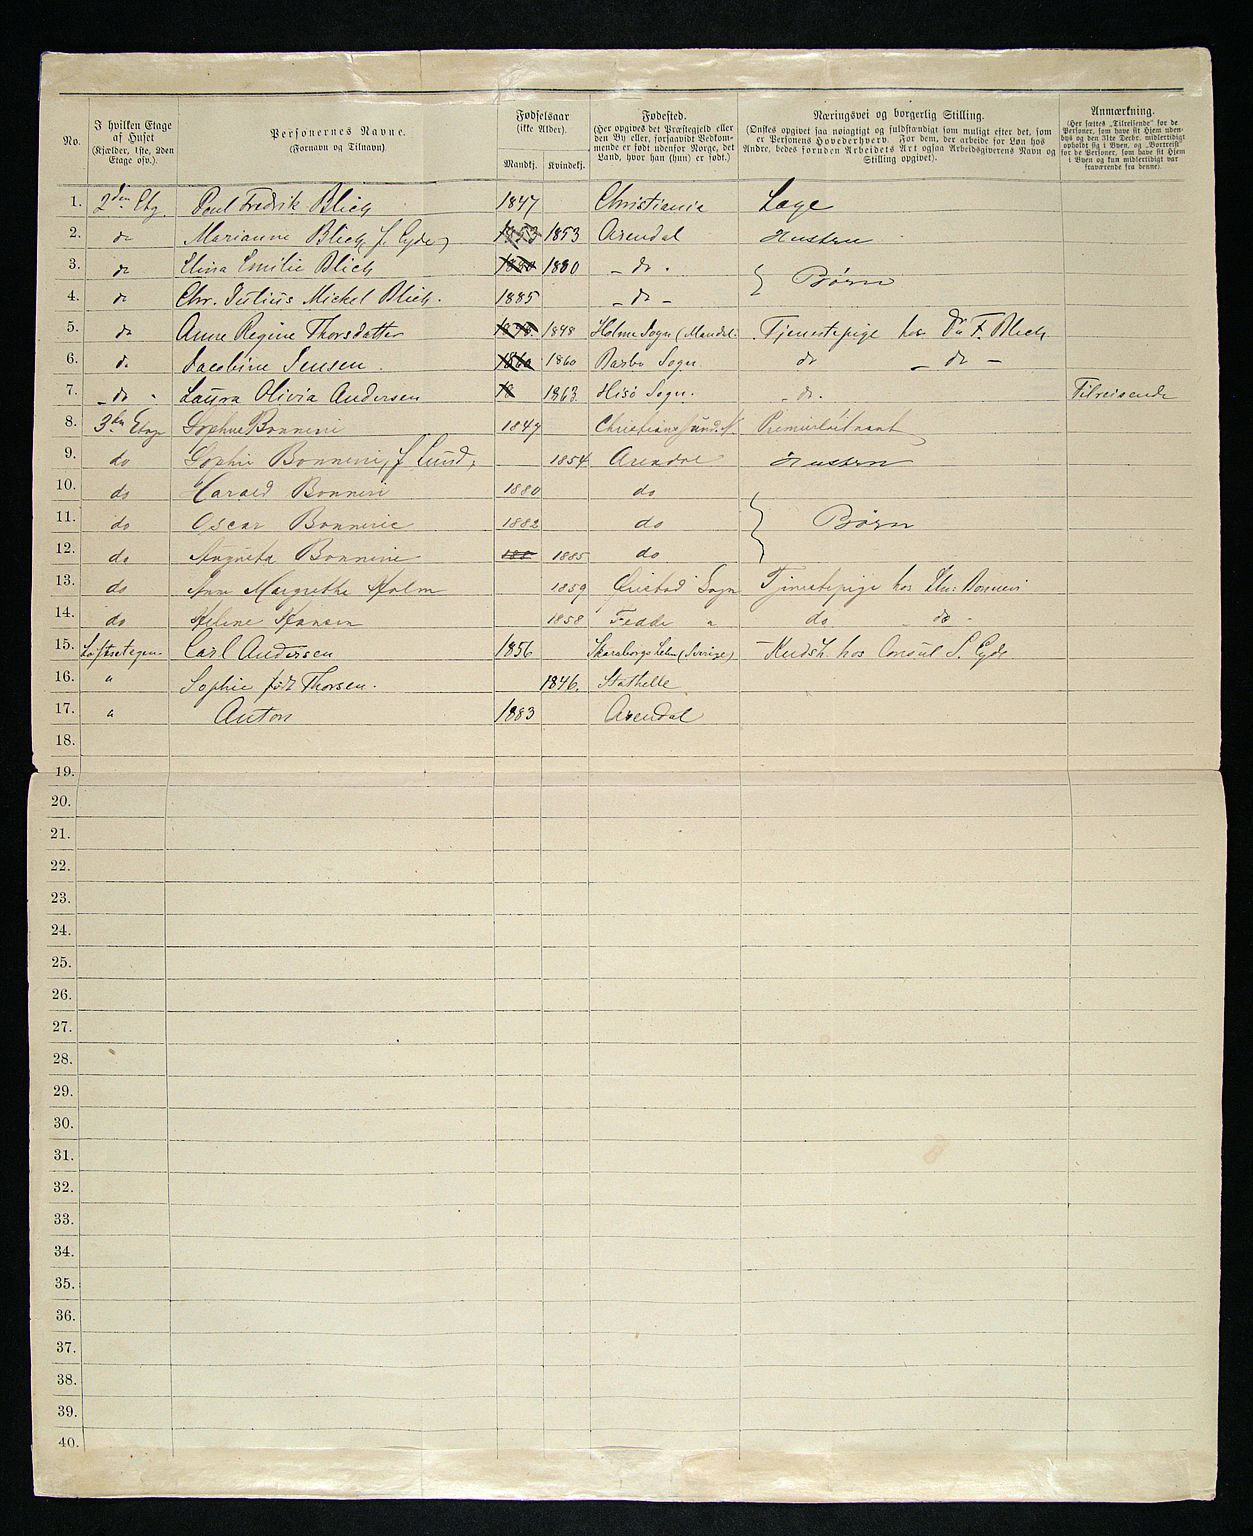 No.
I hvilken Etage
af Huset
(Kjælder, 1ste, 2den
Etage osv.).
Personernes Navne.
(Fornavn og Tilnavn).
Fødselsaar
(ikke Alder).
Mandkj. Kvindekj.
Fødested.
(Her opgives det Præstegjeld eller
den By eller, forsaavidt Vedkom-
mende er født udenfor Norge, det
Land, hvor han (hun) er født.)
Næringsvei og borgerlig Stilling.
(Ønskes opgivet saa nøiagtigt og fuldstændigt som muligt efter det, som
er Personens Hovederhverv. For dem, der arbeide for Løn hos
Andre, bedes foruden Arbeidets Art ogsaa Arbeidsgiverens Navn og
Stilling opgivet).
Anmærkning.
(Her sættes „Tilreisende“ for de
Personer, som have sit Hjem uden-
bys og den 31te Decbr. midlertidigt
opholdt sig i Byen, og „Bortreist“
for de Personer, som have sit Hjem
i Byen og kun midlertidigt var
fraværende fra denne).
1. 2den Etg. Poul Fredrik Blich 1847 Christiania Læge
2. do Marianne Blich f. Eyde 1853 1853 Arendal Hustru
3. do Elina Emilie Blich 1880 1880 - do - Børn
4. do Chr. Julius Mickel Blich. 1885 - do -
5. do Anne Regine Thorsdatter 1848 1848 Holme Sogn (Mandal. Tjenestepige hos Dr F. Blich
6. do Jacobine Jensen. 1860 1860 Barbo Sogn. do - do -
7. - do - Laura Olivia Andersen 18 1863 Hisø Sogn. - do. Tilreisende
8. 3die Etage Sophus Bonnevie 1847 Christianssund. N. Premierløitnant
9. do Sophie Bonnevie, f Lund, 1854 Arendal Hustru
10. do Harald Bonnevie 1880 do
11. do Oscar Bonnevie 1882 do Børn
12. do Augusta Bonnevie 188 1885 do
13. do Ann Margrethe Holm 1859 Øiestad Sogn Tjenestepige hos Bonnevie
14. do Helene Hansen 1858 Fedde " do do -
15. Loftsetagen Carl Andersen 1856 Skaraborgs Lehn (Sverige) Kudsk hos Consul S. Eyde
16. " Sophie født Thorsen. 1846. Stathelle
17. " Anton 1883 Arendal
18.
19.
20.
21.
22.
23.
24.
25.
26.
27.
28.
29.
30.
31.
32.
33.
34.
35.
36.
37.
38.
39.
40.